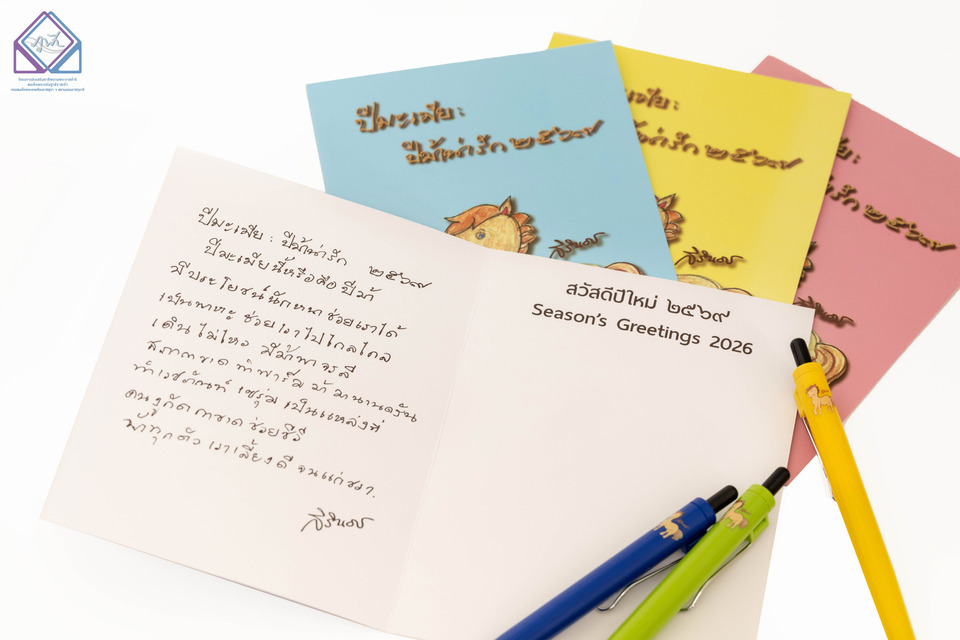 ปีมะเมีย :
ปีม้าน่ารัก ๒๕๖๙
มะเมีย :
ม้าน่ารัก ๒๕๖๙
สิรินธร
น่ารัก ๒๕๖๙
ปีมะเมีย : ปีม้าน่ารัก ๒๕๖๙
ปีมะเมียนี้หรือคือ ปีม้า
มีประโยชน์นักหนา ช่วยเราได้
เป็นพาหะ ช่วยเราไปไกลไกล
เดินไม่ไหว มีม้าพาจรลี
สภากาชาด ทำฟาร์ม ม้ามานานครัน
ทำเวชภัณฑ์ เซรุ่ม เป็นแหล่งที่
คนงูกัด กาชาดช่วยชีวี
ม้าทุกตัว เราเลี้ยงดี จนแก่ชรา.
สิรินธร
สวัสดีปีใหม่ ๒๕๖๙
Season's Greetings 2026